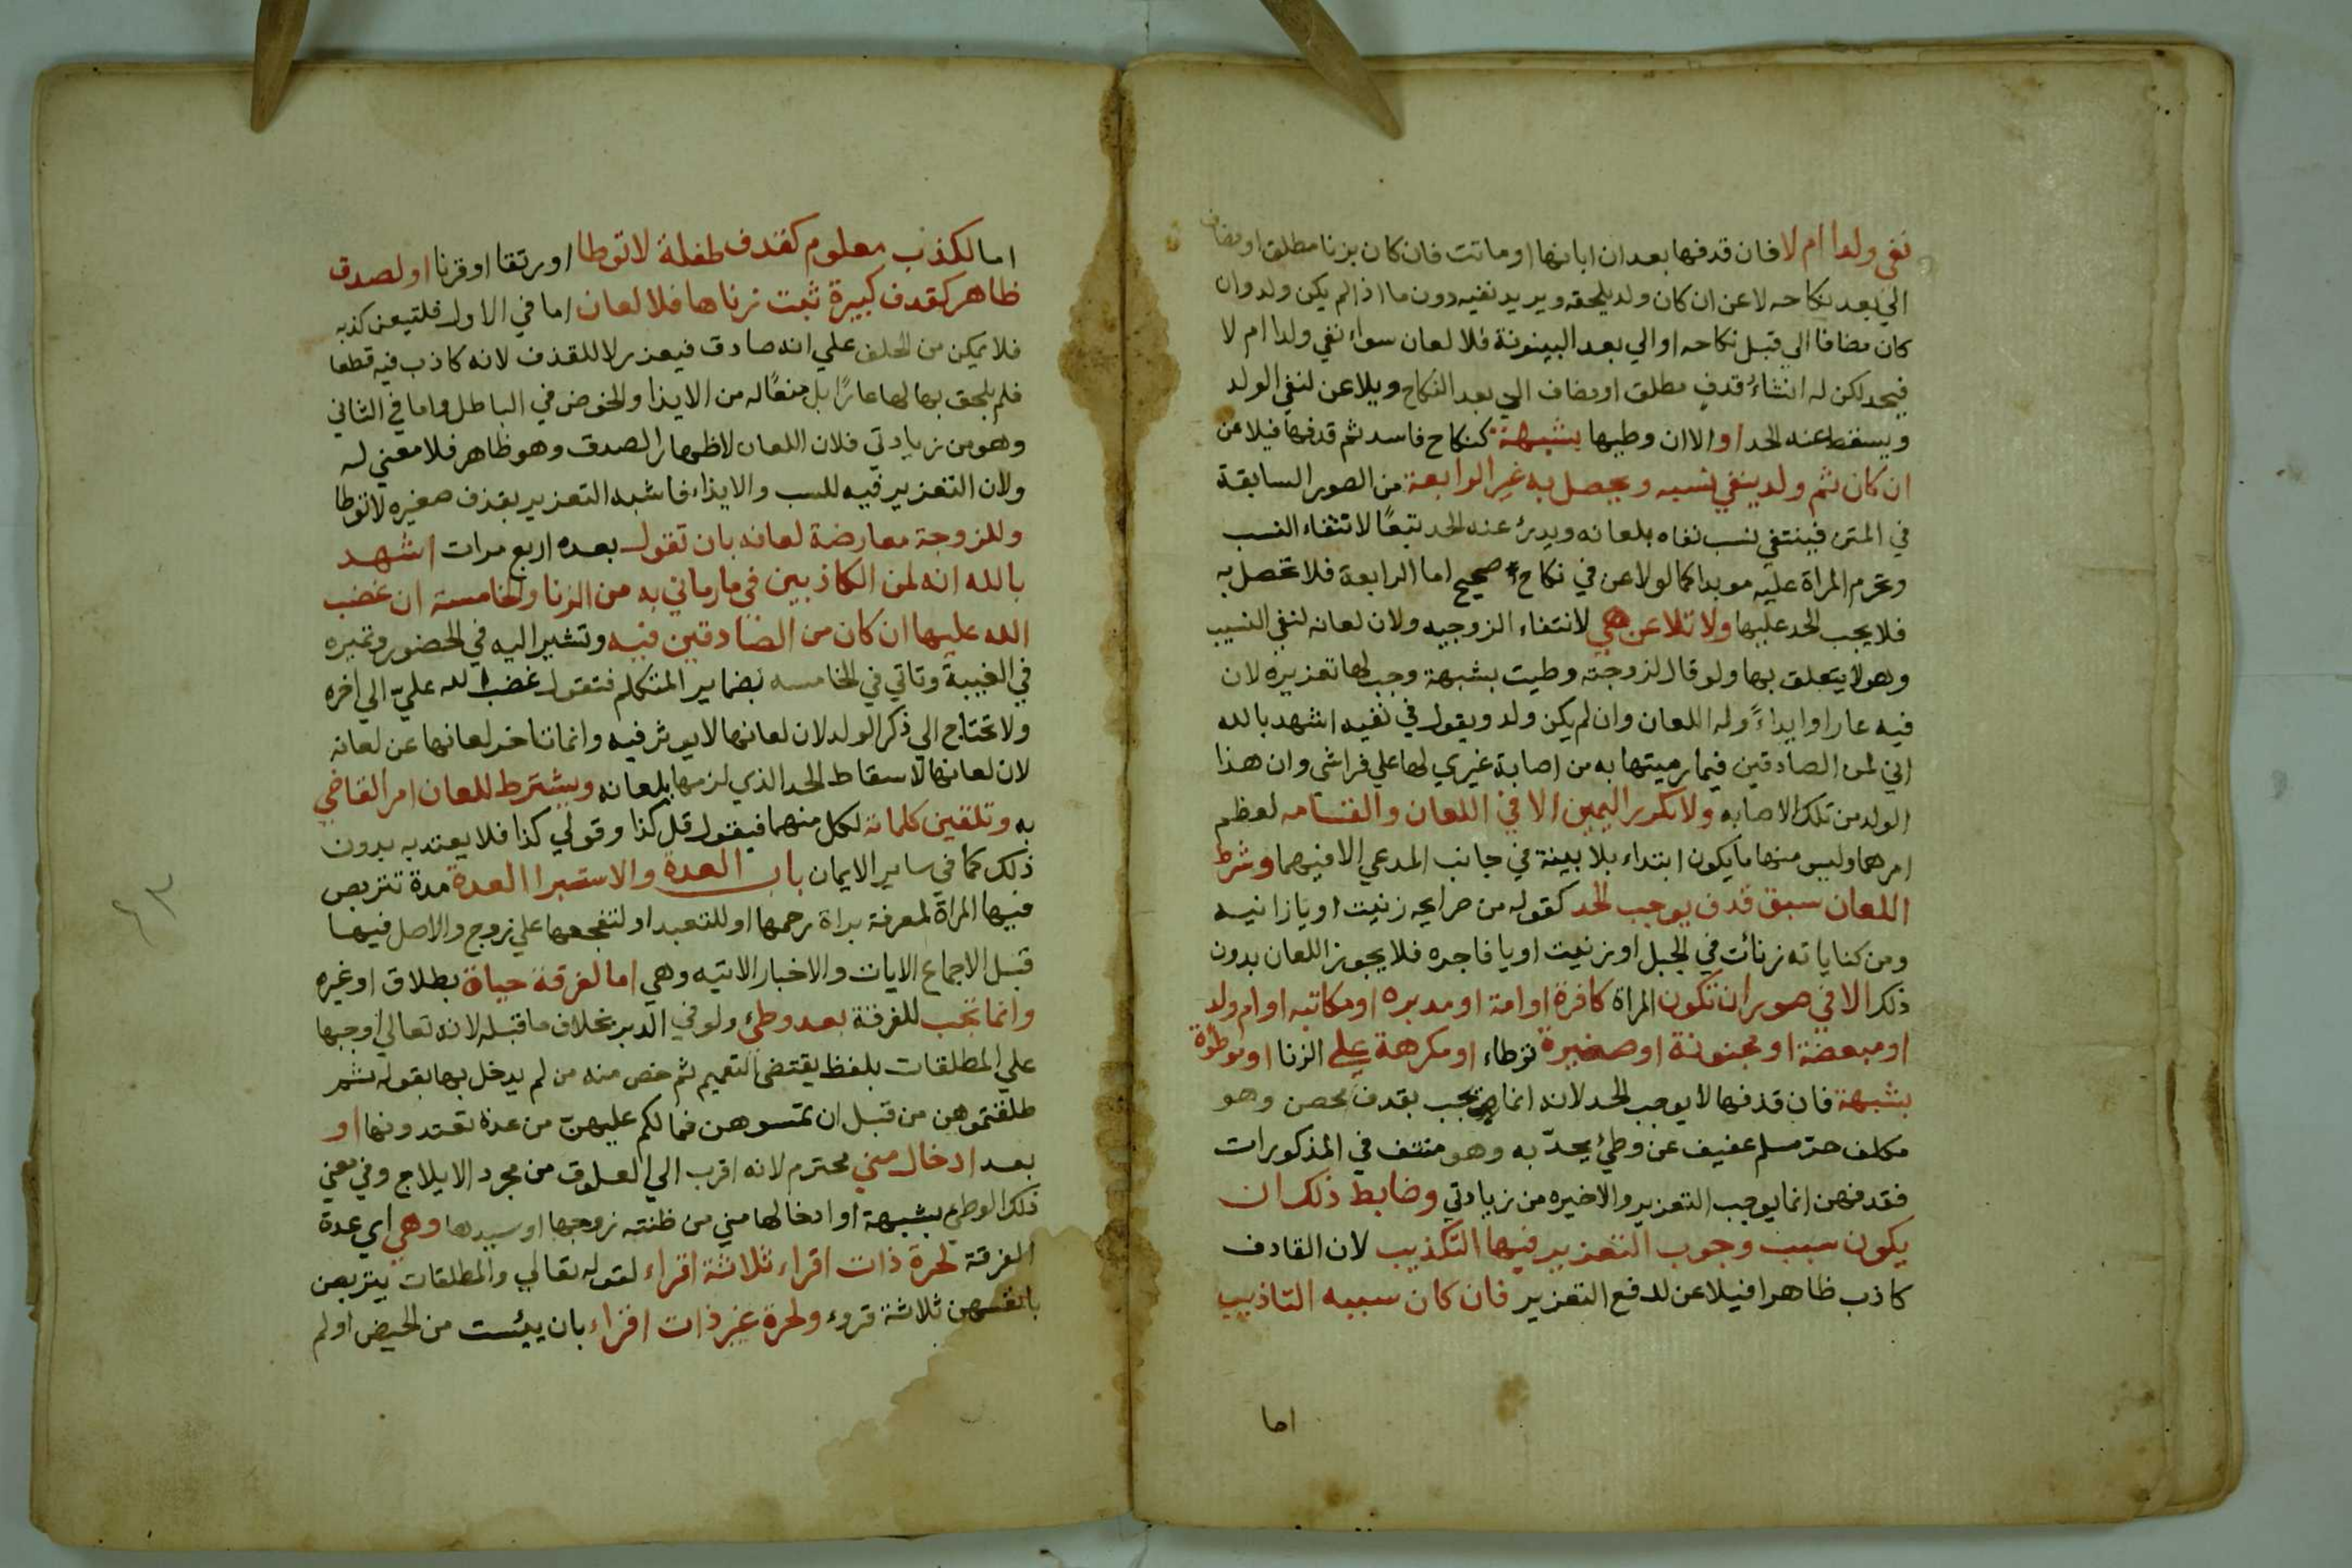 نفي ولدا ام لا فان قدفها بعد ان ابانها او ماتت فان كان بزنا مطلق او مضاف
الي بعد نكاحه لاعن ان كان ولد يلحقه ويريد نفيه دون ما اذا لم يكن ولد وان
كان مضافا الي قبل نكاحه او الي بعد البينونة فلا لعان سواء نفي ولدا ام لا
فيحد لكن له انشاء قدف مطلق او مضاف الي بعد النكاح ويلاعن لنفي الولد
ويسقط عنه الحد او الا ان وطيها بشبهة كنكاح فاسد ثم قدفها فيلاعن
ان كان ثم ولد ينفي نسبه ويحصل به غير الرابعة من الصور السابقة
في المتن فينتفي نسب نفاه بلعانه ويدرئ عنه الحد تبعًا لانتفاء النسب
وتحرم المراة عليه موبدا كما لو لاعن في نكاح صحيح اما الرابعة فلا تحصل به
فلا يجب الحد عليها ولا تلاعن هي لانتفاء الزوجيه ولان لعانه لنفي النسب
وهو لا يتعلق بها ولو قال لزوجته وطيت بشبهة وجب لها تعزيره لان
فيه عارا وايداءً وله اللعان وان لم يكن ولد ويقول في نفيه اشهد بالله
اني لمن الصادقين فيما رميتها به من اصابة غيري لها علي فراشي وان هذا
الولد من تلك الاصابه ولا تكرر اليمين الا في اللعان والقسامه لعظم
امرهما وليس منها ما يكون ابتداء بلا بينة في جانب المدعي الا فيهما وشرط
اللعان سبق قدف يوجب الحد كقوله من صرايحه زنيت او يا زانيه
ومن كناياته زنائت في الجبل او زنيت او يا فاجره فلا يجوز اللعان بدون
ذكر الا في صور ان تكون المراة كافرة او امة او مدبره او مكاتبه او ام ولد
او مبعضة او مجنونة او صغيرة توطاء او مكرهة علي الزنا او موطؤة
بشبهة فان قذفها لا يوجب الحد لانه انما يجب بقدف محصن وهو
مكلف حرّ مسلم عفيف عن وطئ يحدّ به وهو منتف في المذكورات
فقدفهن انما يوجب التعزير والاخيره من زيادتي وضابط ذلك ان
يكون سبب وجوب التعزير فيها التكذيب لان القادف
كاذب ظاهرا فيلاعن لدفع التعزير فان كان سببه التاذيب
اما
اما لكذب معلوم كقدف طفلة لا توطا او رتقا او قرنا او لصدق
ظاهر كقدف كبيرة ثبت زناها فلا لعان اما في الاول فلتيقن كذبه
فلا يمكن من الحلف علي انه صادق فيعزر لا للقذف لانه كاذب فيه قطعا
فلم يلحق بها لها عارًا بل منعًا له من الايذا والخوض في الباطل واما في الثاني
وهو من زيادتي فلان اللعان لاظهار الصدق وهو ظاهر فلا معني له
ولان التعزير فيه للسب والايذاء فاشبه التعزير بقذف صغيره لا توطا
وللزوجة معارضة لعانه بان تقول بعده اربع مرات اشهد
بالله انه لمن الكاذبين في ما رماني به من الزنا والخامسة ان غضب
الله عليها ان كان من الصادقين فيه وتشير اليه في الحضور وتميزه
في الغيبة وتاتي في الخامسه بضماير المتكلم فتقول غضب الله عليّ الي اخره
ولا تحتاج الي ذكر الولد لان لعانها لا يوثر فيه وانما تاخر لعانها عن لعانه
لان لعانها لاسقاط الحد الذي لزمها بلعانه ويشترط للعان امر القاضي
به وتلقين كلماته لكل منهما فيقول قل كذا وقولي كذا فلا يعتد به بدون
ذلك كما في ساير الايمان باب العدة والاستبرا العدة مدة تتربص
فيها المراة لمعرفة براة رحمها او للتعبد او لتفجعها علي زوج والاصل فيها
قبل الاجماع الايات والاخبار الاتيه وهي اما لفرقة حياة بطلاق او غيره
وانما تجب للفرقة بعد وطئ ولو في الدبر بخلاف ما قبله لانه تعالي اوجبها
علي المطلقات بلفظ يقتضي التعميم ثم خص منه من لم يدخل بها بقوله ثم
طلقتموهن من قبل ان تمسوهن فما لكم عليهنّ من عدة تعتدونها او
بعد ادخال مني محترم لانه اقرب الي العلوق من مجرد الايلاج وفي معني
ذلك الوطئ بشبهة او ادخالها مني من ظنته زوجها او سيدها وهي اي عدة
الفرقة لحرة ذات اقراء ثلاثة اقراء لقوله تعالي والمطلقات يتربصن
بانفسهن ثلاثة قروء ولحرة غير ذات اقراء بان يئست من الحيض او لم